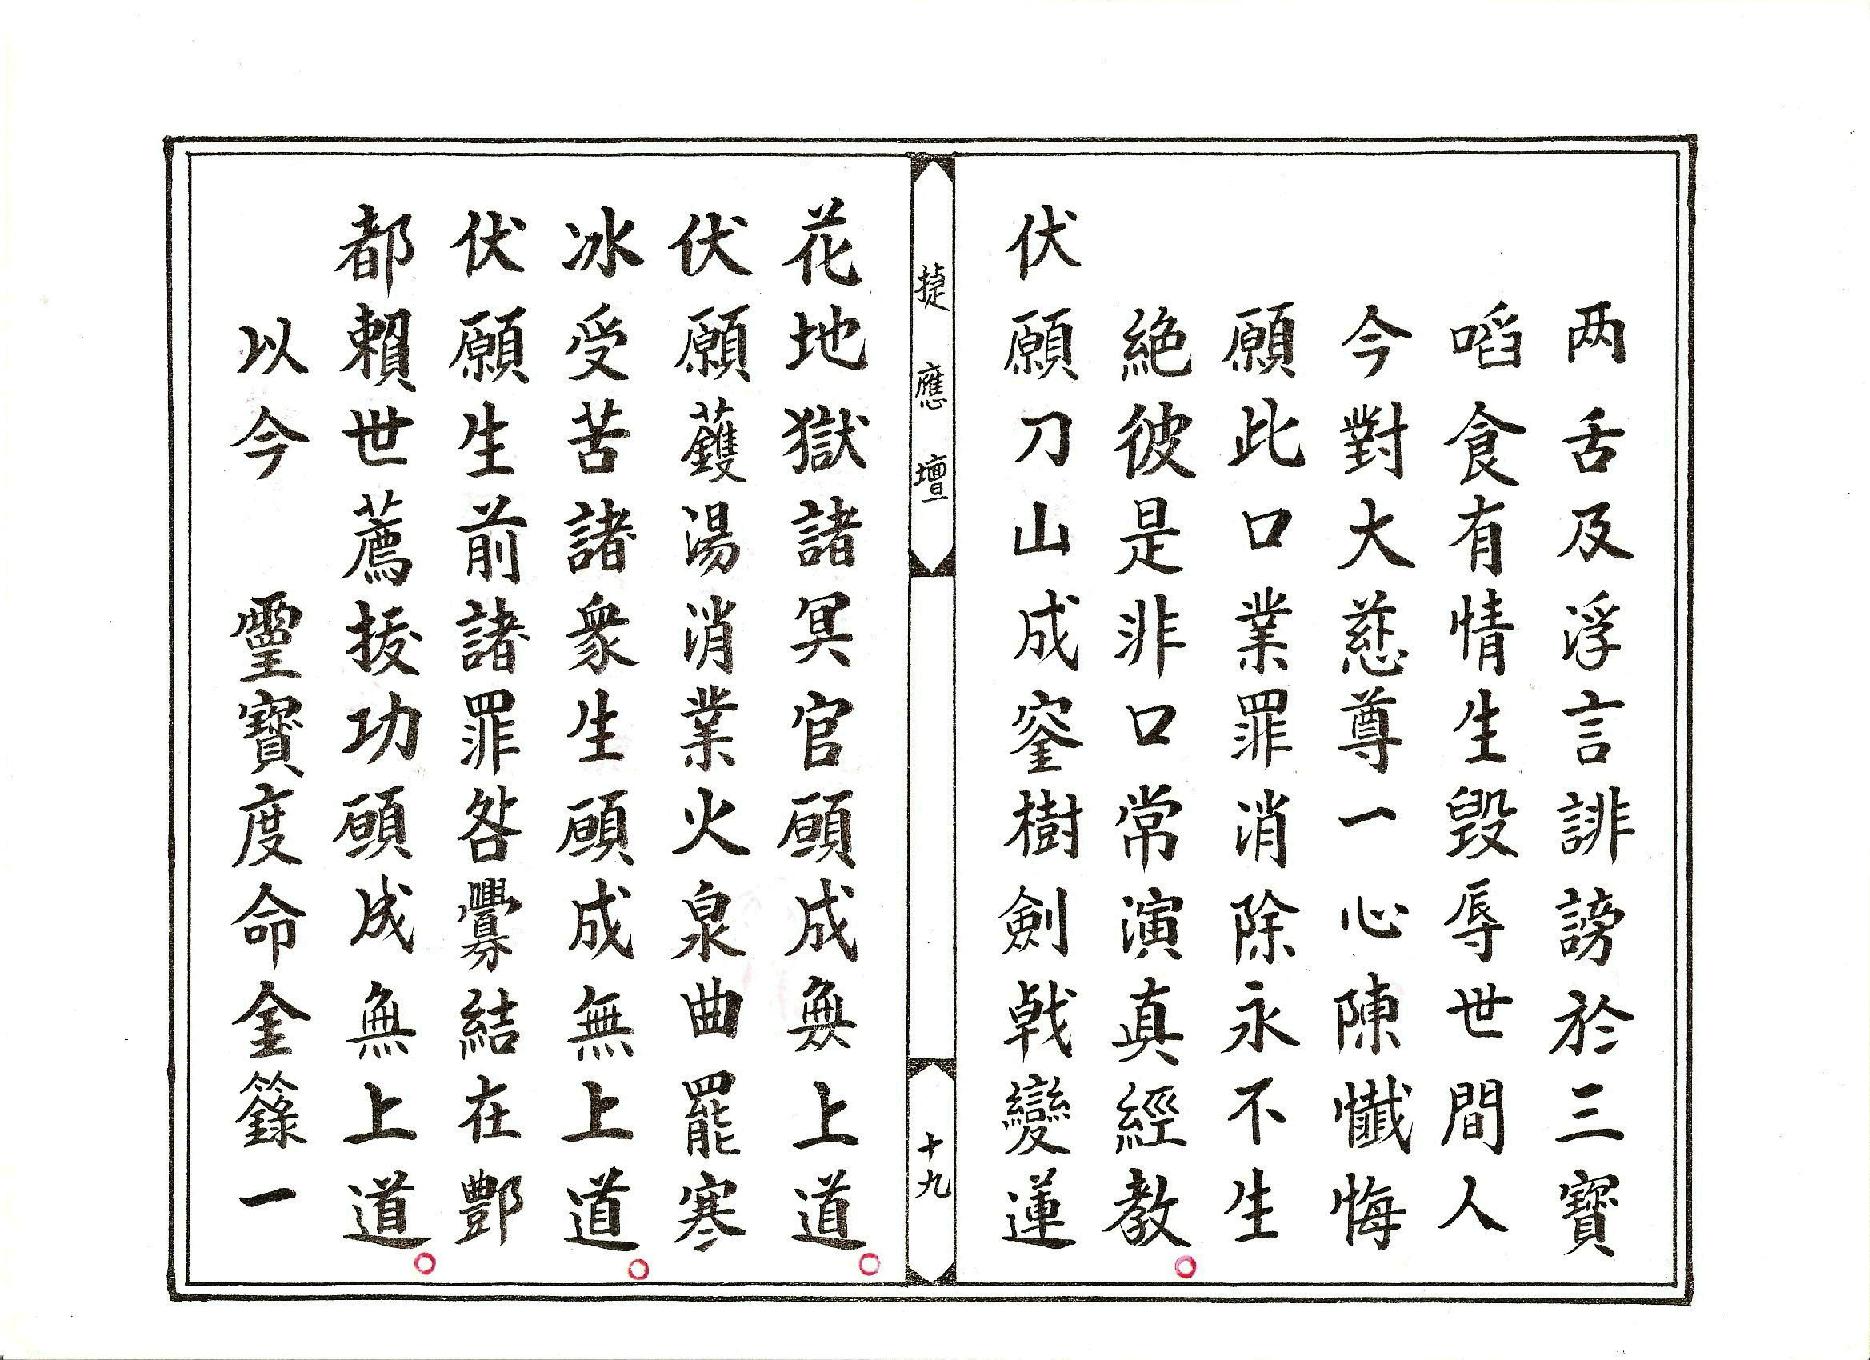 两舌及浮言誹謗於三寶
啗食有情生毀辱世間人
今對大慈尊一心陳懺悔
願此口業罪消除永不生
絶彼是非口常演真經教
伏願刀山成寳樹劍戟變蓮
捷應壇
十九
花地獄諸冥官願成無上道
伏願鑊湯消業火泉曲罷寒
冰受苦諸衆生願成無上道
伏願生前諸罪咎釁結在酆
都賴世薦拔功願成無上道
以今 靈寶度命金籙一